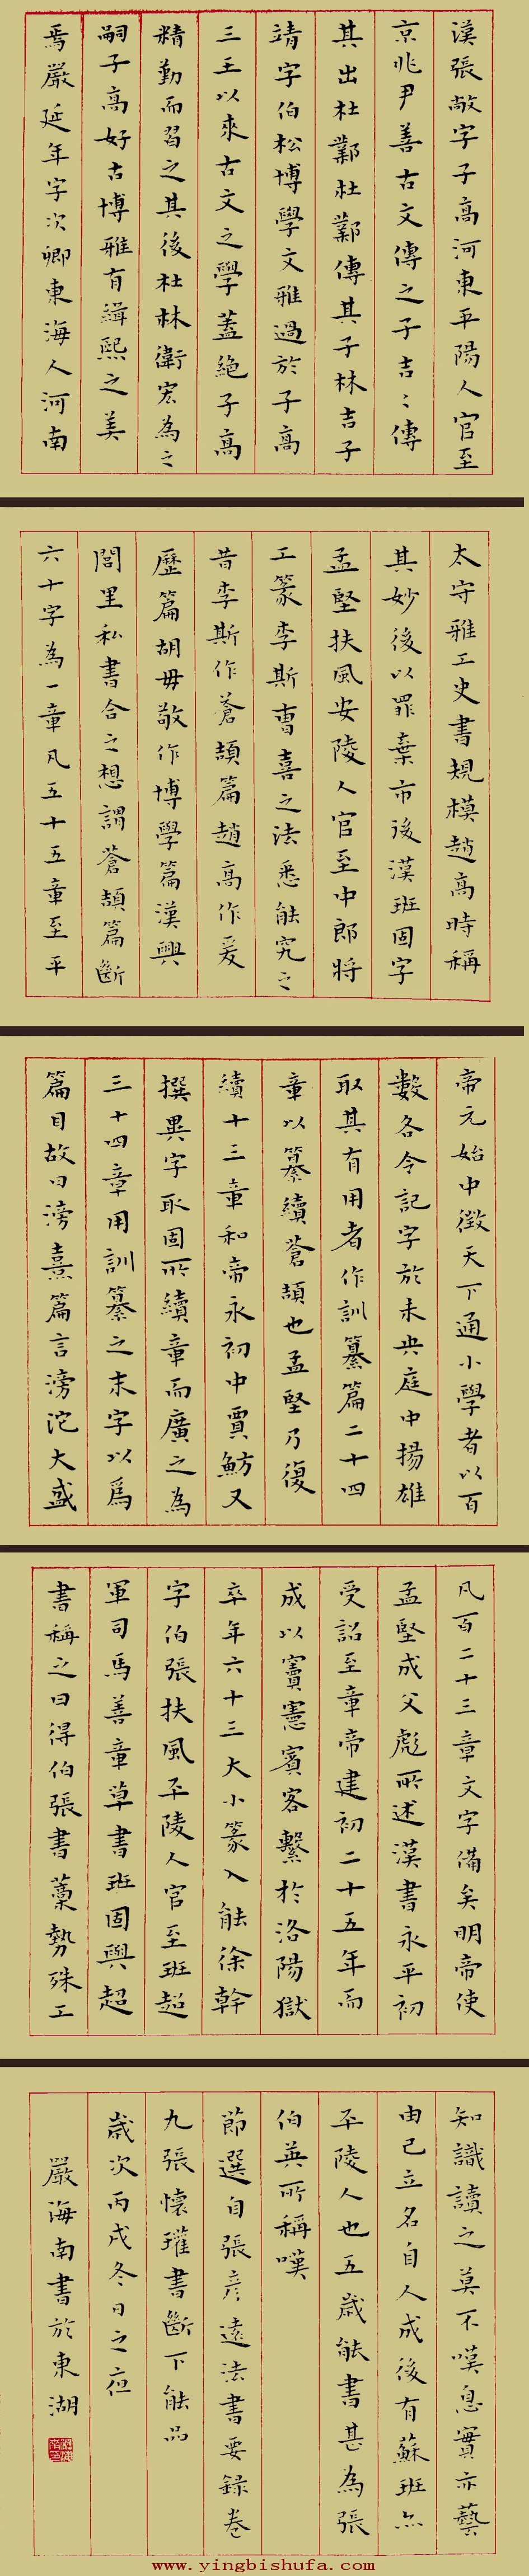 漢張敞字子高河東平陽人官至
京兆尹善古文傳之子吉〻傳
其出杜鄴杜鄴傳其子林吉子
靖字伯松博學文雅過於子高
三王以來古文之學蓋絶子高
精勤而習之其後杜林衛宏為之
嗣子高好古博雅有緝熙之美
焉嚴延年字次卿東海人河南
太守雅工史書規模趙高時稱
其妙後以罪棄市後漢班固字
孟堅扶風安陵人官至中郎將
工篆李斯曹喜之法悉能究之
昔李斯作蒼頡篇趙高作爰
歷篇胡毋敬作博學篇漢興
閭里私書合之想謂蒼頡篇斷
六十字為一章凡五十五章至平
帝元始中徵天下通小學者以百
數各令記字於未央庭中揚雄
取其有用者作訓纂篇二十四
章以纂續蒼頡也孟堅乃復
續十三章和帝永初中賈魴又
撰異字取固所續章而廣之為
三十四章用訓纂之末字以為
篇目故曰滂熹篇言滂沱大盛
凡百二十三章文字備矣明帝使
孟堅成父彪所述漢書永平初
受詔至章帝建初二十五年而
成以竇憲賓客繫於洛陽獄
卒年六十三大小篆入能徐幹
字伯張扶風平陵人官至班超
軍司馬善章草書班固與超
書稱之曰得伯張書藁勢殊工
知識讀之莫不嘆息實亦藝
由己立名自人成後有蘇班亦
平陵人也五歲能書甚為張
伯英所稱嘆
節選自張彥遠法書要錄卷
九張懷瓘書斷下能品
歲次丙戌冬日之夜
嚴海南書於東湖
www.yingbishufa.com